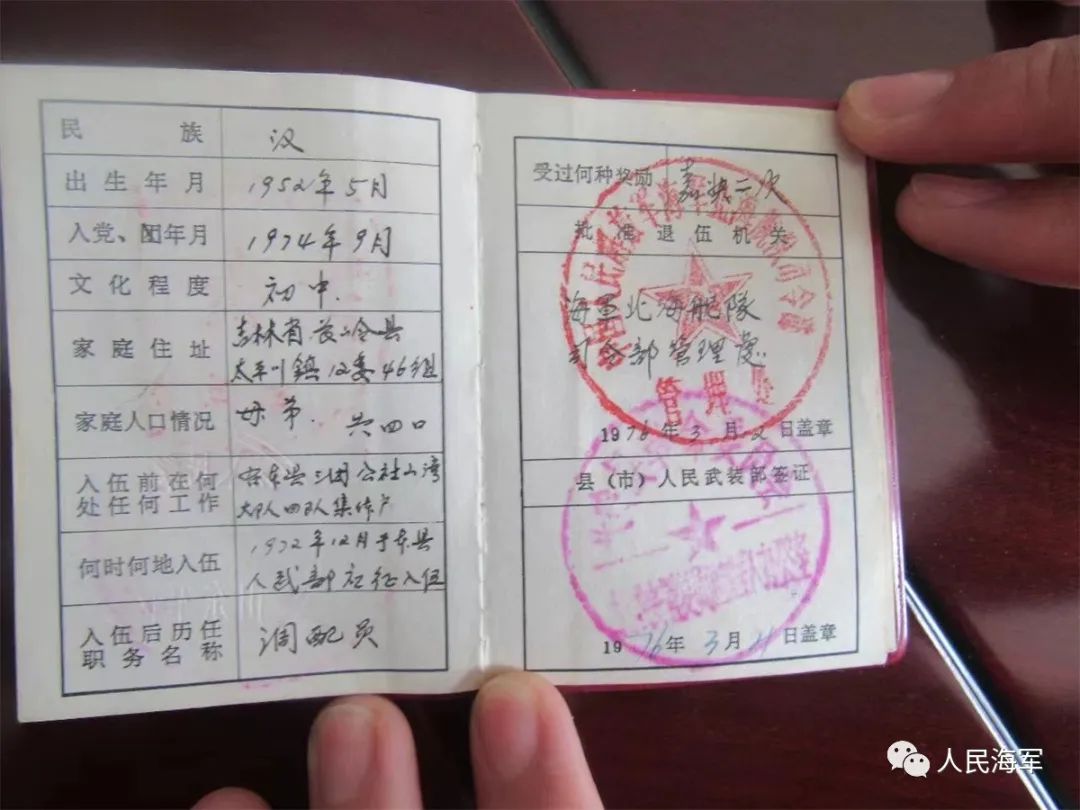 民 族 汉
出生年月 1952年5月
入党、团年月 1974年9月
文化程度 初中.
家庭住址 吉林省 岭县
太平川镇12委46组
家庭人口情况 母 弟. 共四口
入伍前在何
处任何工作
公社山湾
大队四队集体户
何时何地入伍 1972年12月于 县
人武部 征入伍
入伍后历任
职务名称
调配员
受过何种奖励 嘉奖二次
批准退伍机关
海军北海舰队
司令部管理处
管理处
1976年3月 日盖章
县(市)人民武装部签证
1976年3月 日盖章
人民海军